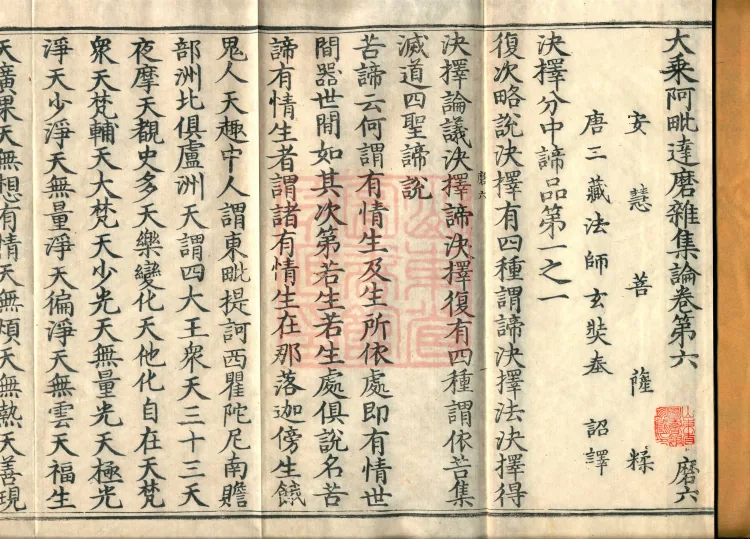 大乘阿毗達磨雜集論卷第六 磨六
安慧菩薩糅
唐三藏法師玄奘奉 詔譯
決擇分中諦品第一之一
復次略說決擇有四種謂諦決擇法決擇得
決擇論議決擇諦決擇復有四種謂依苦集
磨六
滅道四聖諦說
苦諦云何謂有情生及生所依處即有情世
間器世間如其次第若生若生處俱說名苦
諦有情生者謂諸有情生在那落迦傍生餓
鬼人天趣中人謂東毗提訶西瞿陀尼南贍
部洲北俱盧洲天謂四大王眾天三十三天
夜摩天覩史多天樂變化天他化自在天梵
眾天梵輔天大梵天少光天無量光天極光
淨天少淨天無量淨天徧淨天無雲天福生
天廣果天無想有情天無煩天無熱天善現